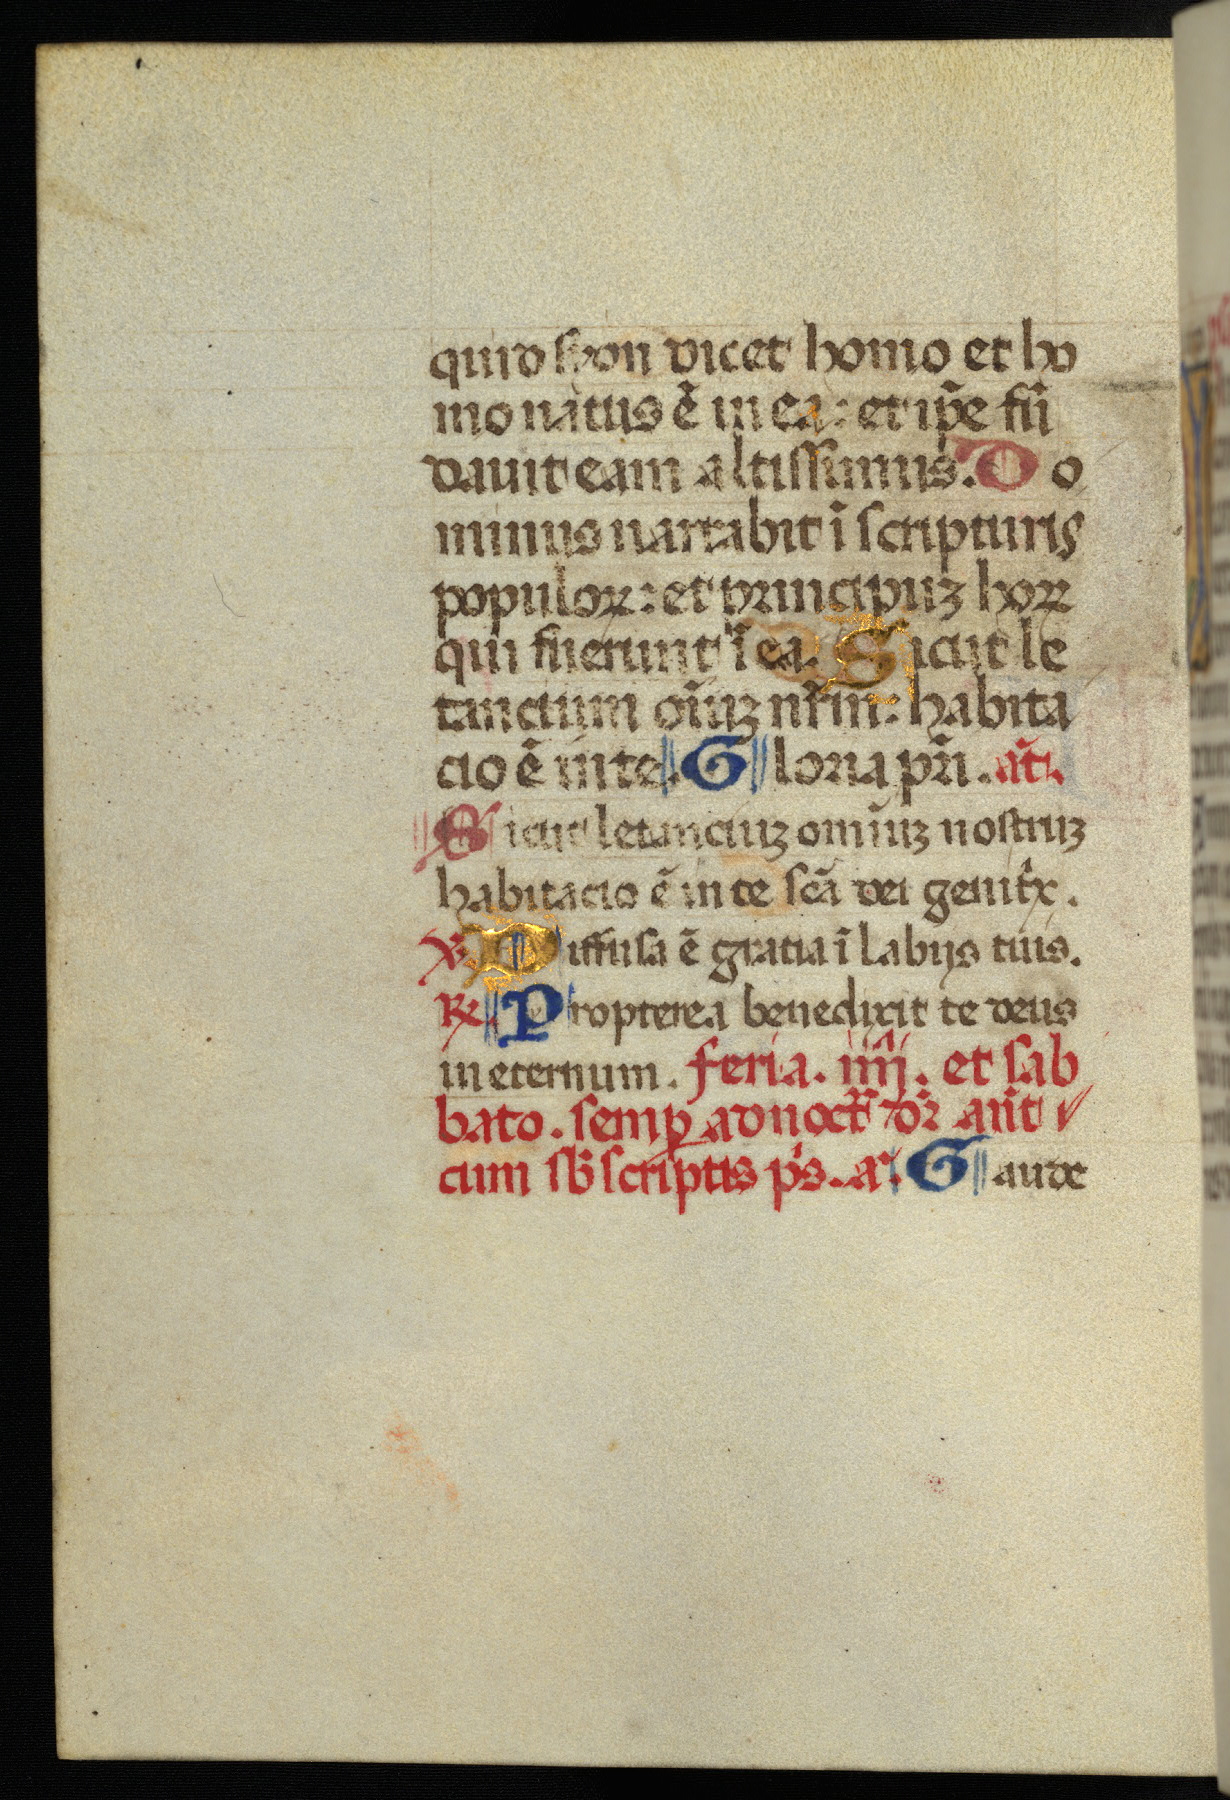 quid syon dicet homo et ho
mo natus ē in ea: et ip̄e fū
dauit eam altissimus. Do
minus narrabit ī scripturis
populoꝝ: et principuꝫ hoꝝ
qui fuerunt ī ea. Sicut le
tancium oīuꝫ nr̄m: habita
cio ē in te. Gloria pr̄i. an̄t.
Sicut letanciuꝫ omīuꝫ nostruꝫ
habitacio ē in te scā dei genitͥx.
℣. Diffusa ē gratia ī labijs tuis.
℟. Propterea benedixit te deus
in eternum. feria. iiij. et sab
bato. semꝑ ad noct̄ dr̄ an̄t
cum sb̄scriptis ps̄. a. Gaude